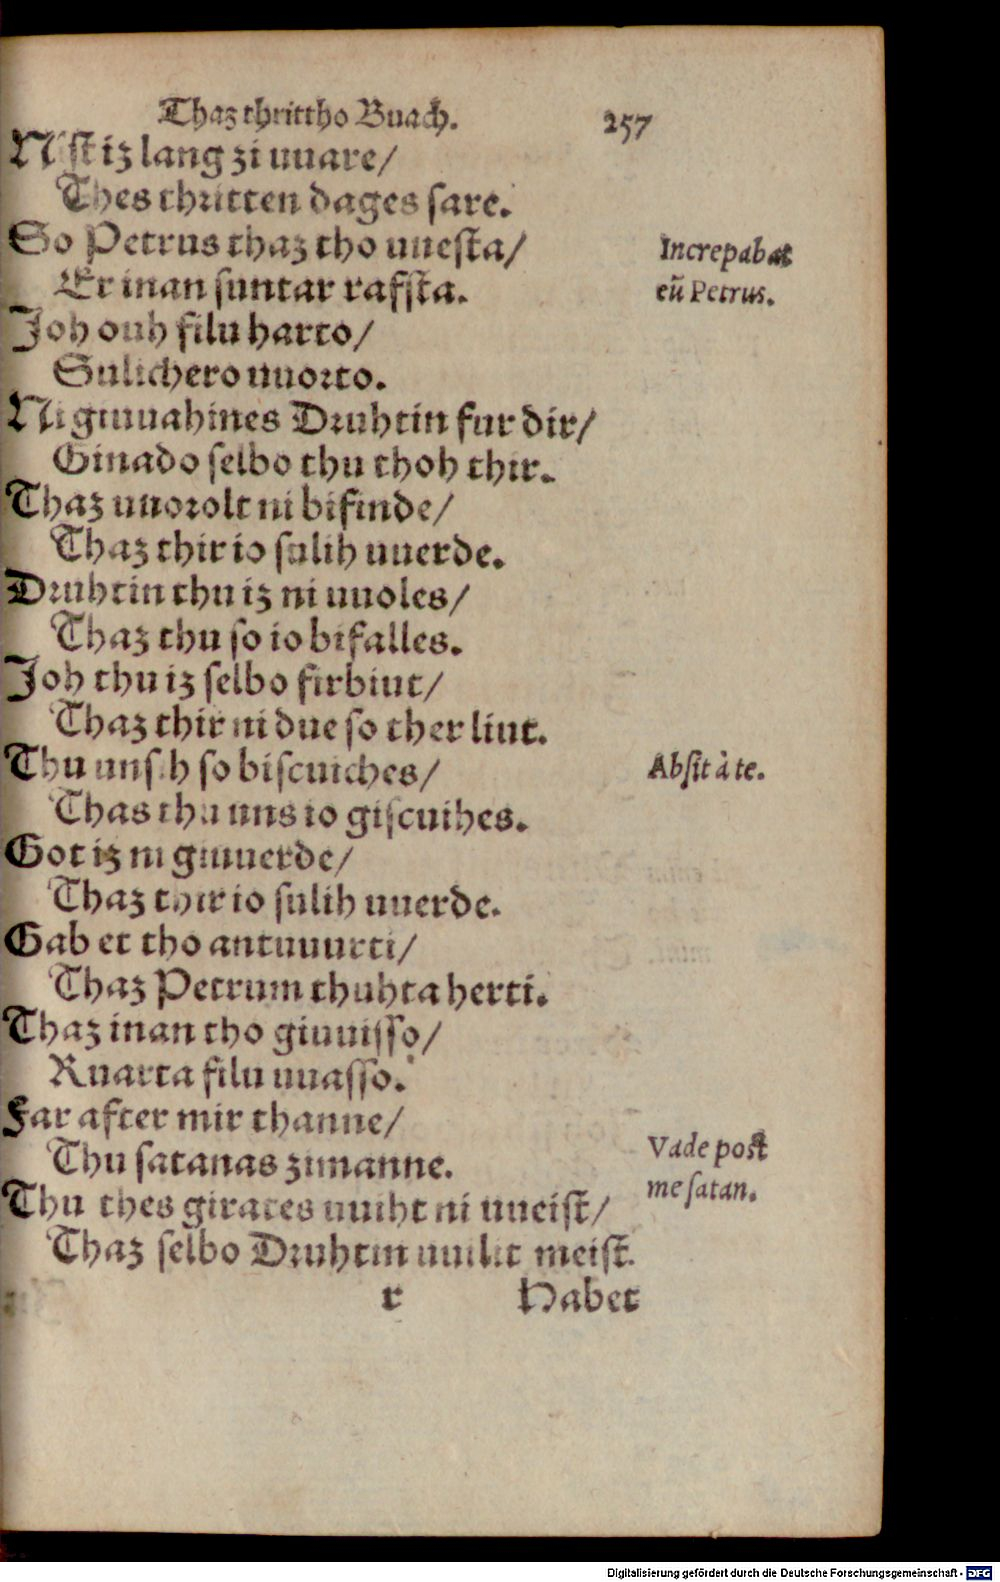 Thaz thrittho Buach. 257
Nist iz lang zi uuare/
Thes thritten dages sare.
So Petrus thaz tho uuesta/
Increpabat
Er inan suntar rafsta.
eū Petrus.
Joh ouh filu harto/
Sulichero uuorto.
Ni giuuahines Druhtin fur dir/
Ginado selbo thu thoh thir.
Thaz uuorolt ni bifinde/
Thaz thir io sulih uuerde.
Druhtin thu iz ni uuoles/
Thaz thu so io bifalles.
Joh thu iz selbo firbiut/
Thaz thir ni due so ther liut.
Thu unsih so biscuiches/
Absit à te.
Thas thu uns io giscuihes.
Got iz ni giuuerde/
Thaz thir io sulih uuerde.
Gab er tho antuuurti/
Thaz Petrum thuhta herti.
Thaz inan tho giuuisso/
Ruarta filu uuasso.
Far after mir thanne/
Vade post
Thu satanas zimanne.
me satan.
Thu thes girates uuiht ni uueist/
Thaz selbo Druhtin uuilit meist.
r Habet
Digitalisierung gefördert durch die Deutsche Forschungsgemeinschaft - DFG